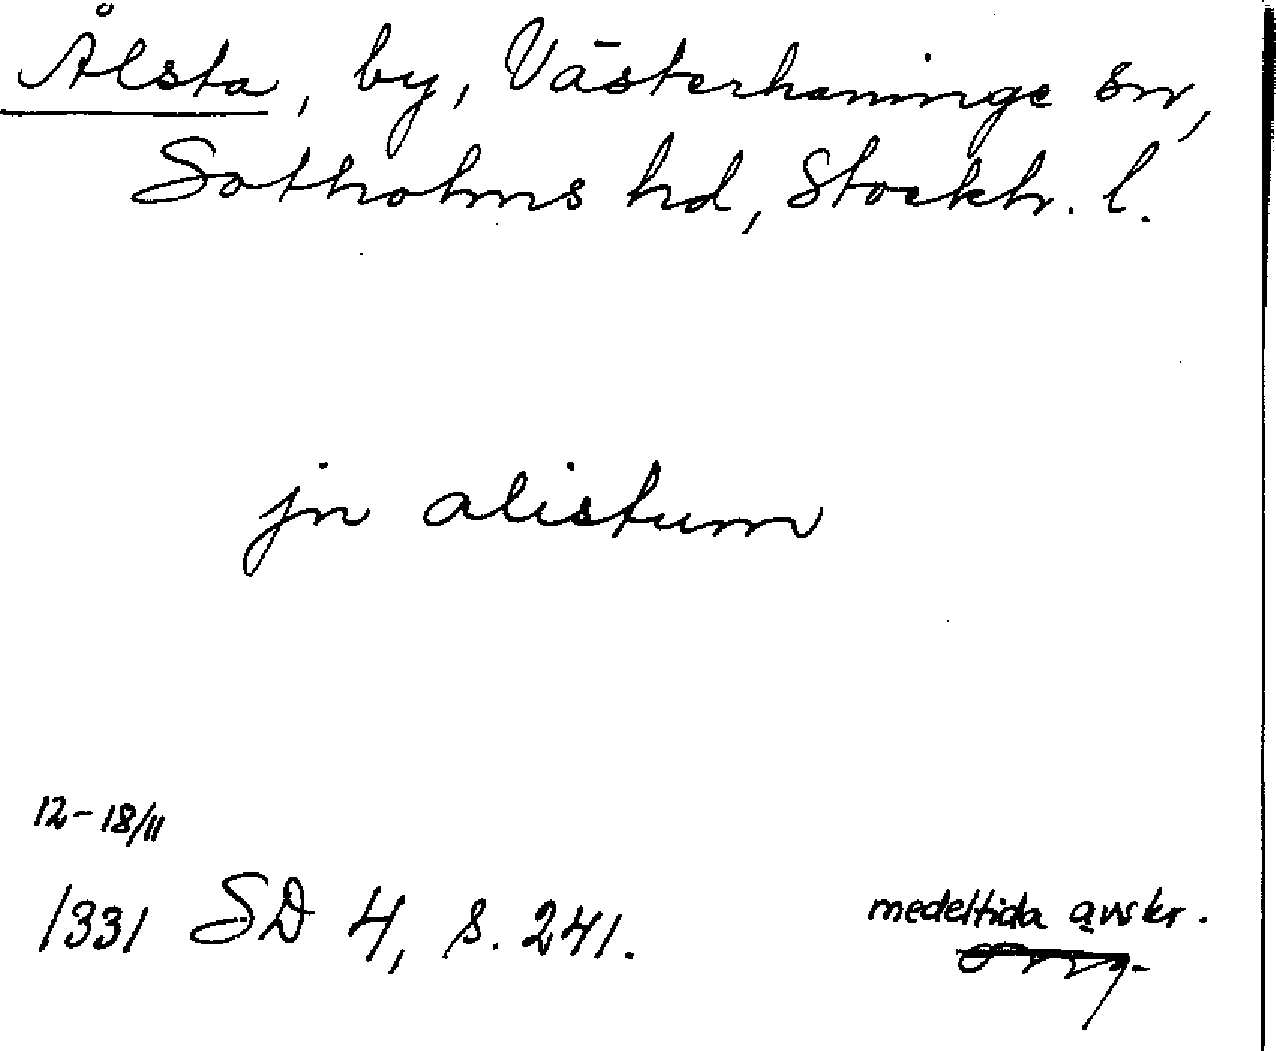 Ålsta, by, Västerhaninge sn,
Sotholms hd, Stockh. l.
jn alistum
12-18/11
1331 SD 4, s. 241.
medeltida avskr.
orig.